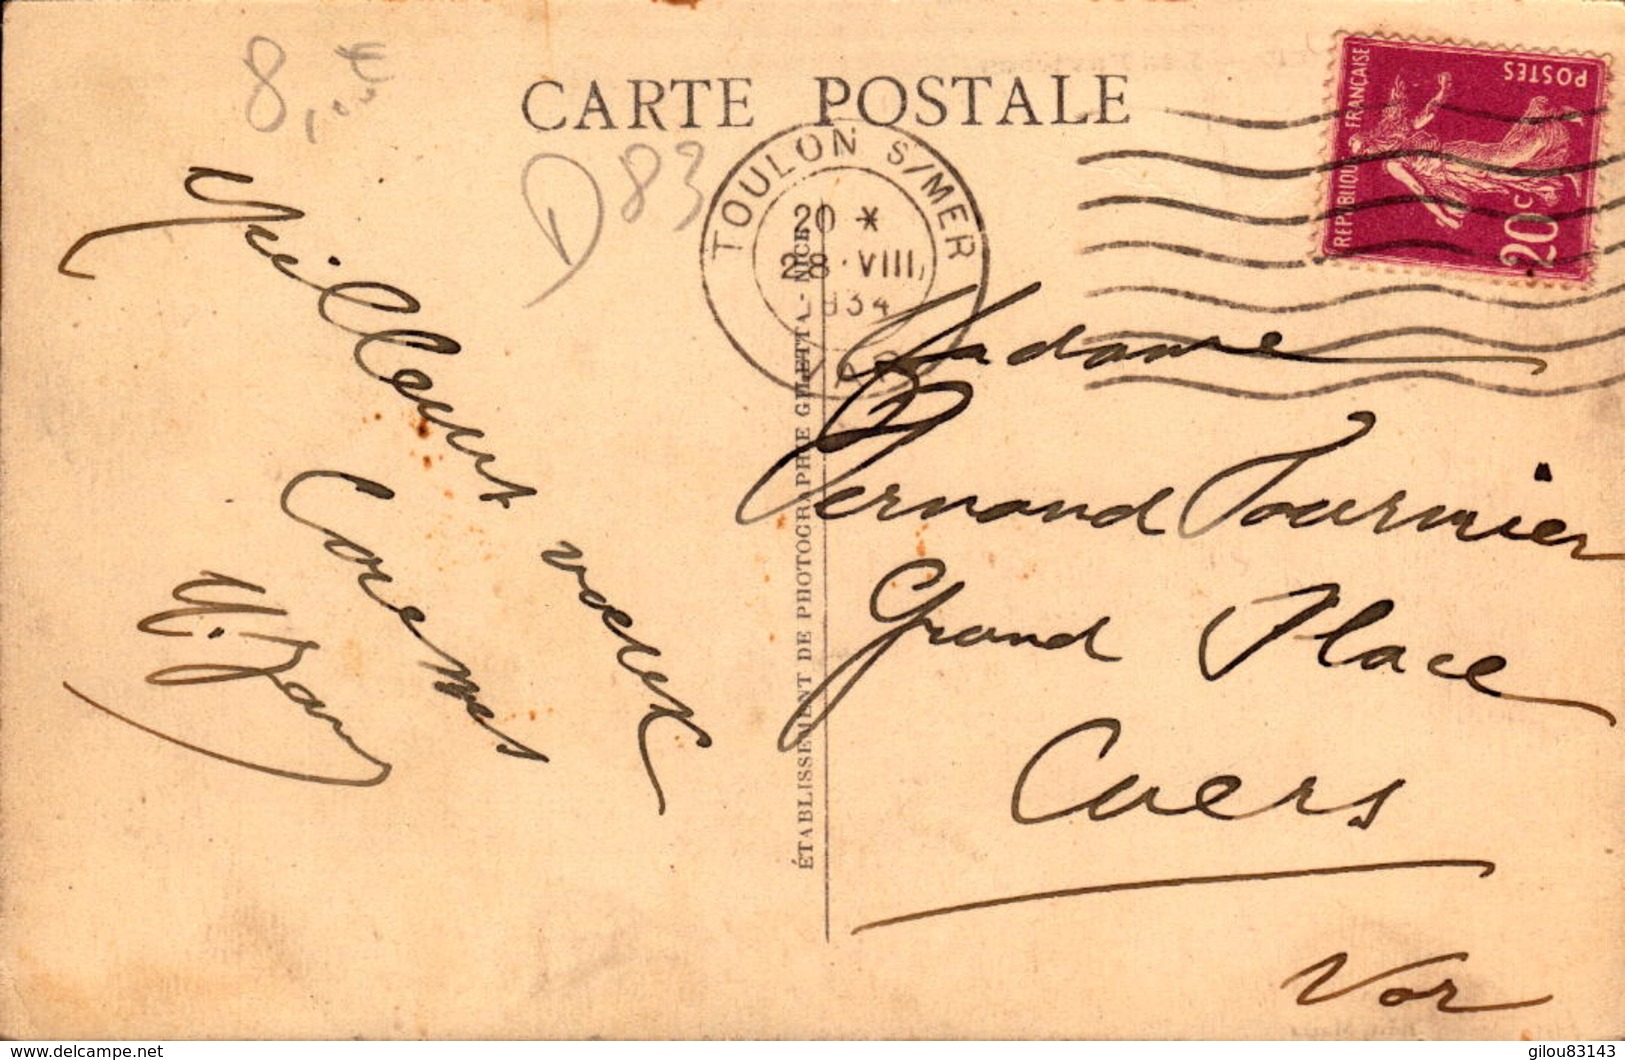 CARTE POSTALE
8
D83
TOULON S/MER
20 *
28 · VIII
1934
VAR
RÉPUBLIQUE FRANÇAISE
POSTES
20c
Meilleurs voeux
ÉTABLISSEMENT DE PHOTOGRAPHIE GILETTA - NICE
Madame
Fernand Fournier
Grand Place
Cuers
Var
delcampe.net
gilou83143